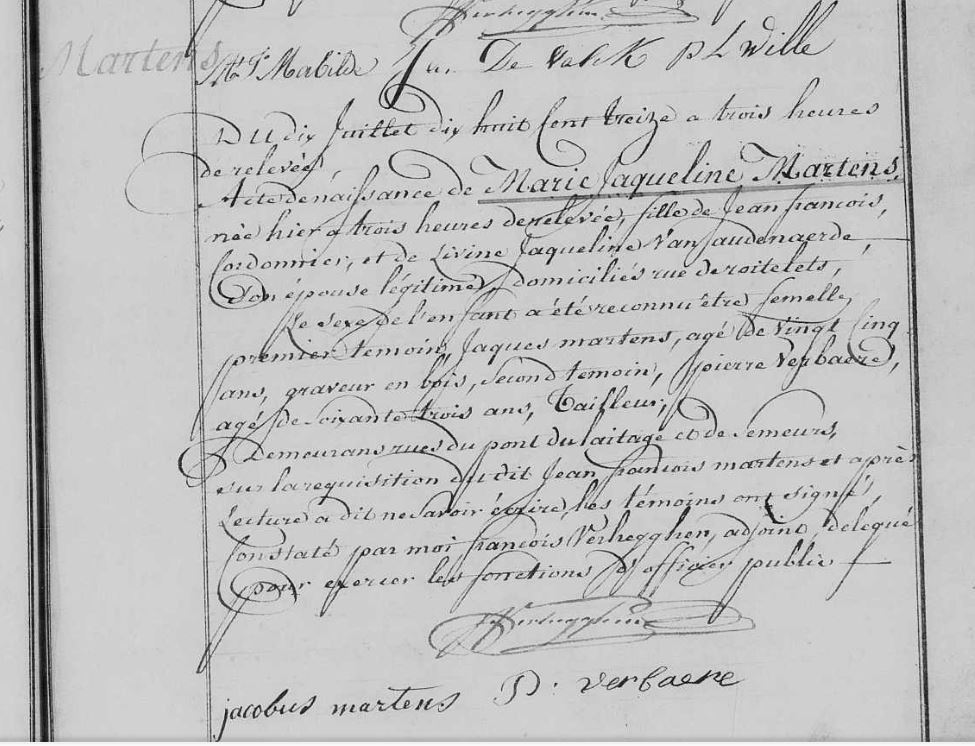 Verhegghen
Martens
Ju. De Valck P L Wille
Du dix Juillet dix huit Cent treize a trois heures
de relevée,
Acte de naissance de Marie Jaqueline Martens,
née hier a trois heures de relevée, fille de Jean francois,
Cordonnier, et de Livine Jaqueline Van audenaerde,
Son épouse légitime, domiciliés rue de roitelets,
Le sexe de l'enfant a été reconnu être femelle,
premier temoin, Jaques martens, agé de vingt Cinq
ans, graveur en bois, second temoin, pierre Verbaere,
agé de soixante trois ans, Tailleur,
Demeurans rues du pont du laitage et de semeurs,
sur la requisition du dit Jean francois martens et après
Lecture a dit ne savoir écrire, les témoins ont signés,
Constaté par moi francois Verhegghen, adjoint délégué
pour exercer les fonctions d'officier public
Verhegghen
jacobus martens P. verbaere